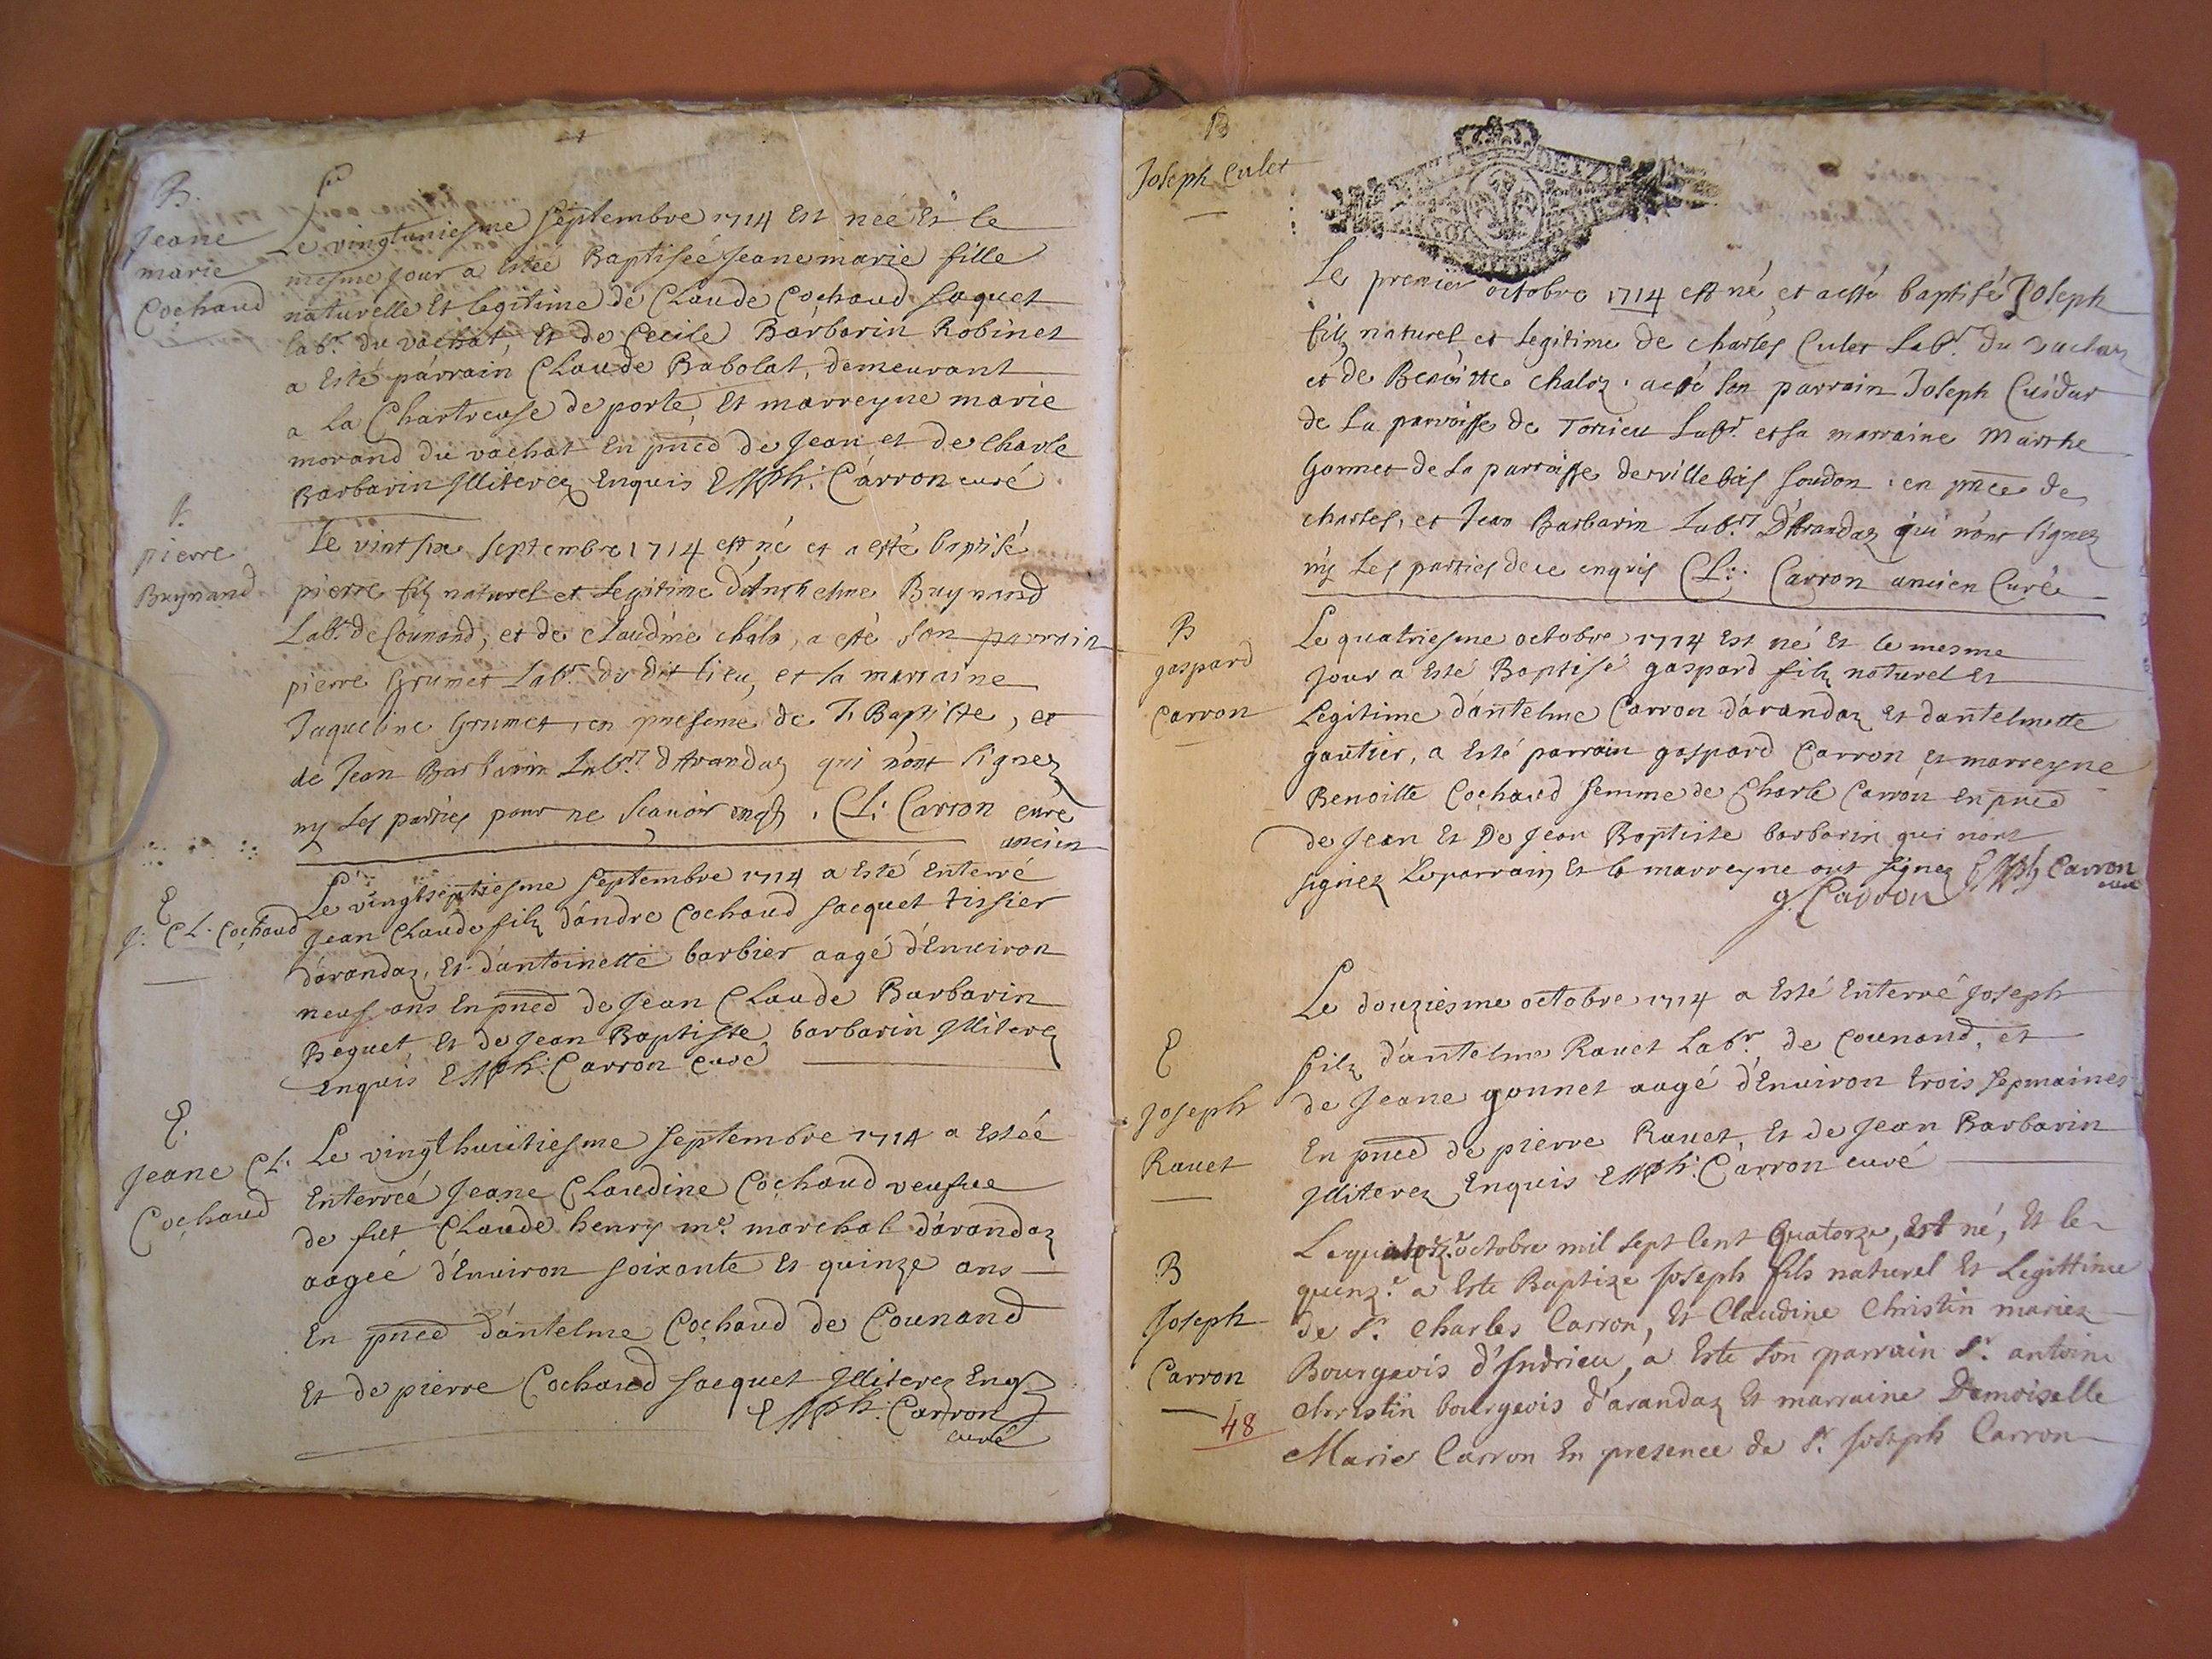 B.
Jeane
marie
Cochaud
Le vingtuniesme septembre 1714 Est nee Et le
mesme Jour a Estée Baptisée Jeane marie fille
naturelle Et legitime de Claude Cochaud Jaquet
labr. du vachat, Et de Cecile Barbarin Robinet
a Esté parrain Claude Babolat, demeurant
a la Chartreuse de porte Et marreyne marie
morand du vachat En pnce de Jean et de Charle
Barbarin Illiterez Enquis Carron curé
pierre
Buynand
Le vint six septembre 1714 est né et a esté baptisé
pierre filz naturel et legitime d'Anthelme Buynand
Labr. de Counand, et de claudine chalo, a esté son parrain
pierre Grumet Labr. du dit lieu, et sa marraine
Jaqueline Grumet, en presence de J. Baptiste, et
de Jean Barbarin Labrs. d'Arandaz qui n'ont signez
ny les parties pour ne scauoir enqs. CL: Carron curé
ancien
E
J: CL. Cochaud
Le vingtseptiesme septembre 1714 a Esté Enterré
Jean Claude filz d'andre Cochaud Jacquet tissier
d'arandaz, Et d'antoinette barbier aagé d'Enuiron
neuf ans En pnce de Jean Claude Barbarin
Beguet, Et de Jean Baptiste barbarin Illiterez
Enquis Carron curé
E.
Jeane CL.
Cochaud
Le vingthuitiesme septembre 1714 a Estée
Enterreé Jeane Claudine Cochaud veufue
de fut Claude henry me. marchal d'arandaz
aageé d'Enuiron soixante Et quinze ans
En pnce d'antelme Cochaud de Counand
Et de pierre Cochaud Jacquet Illiterez Enqs
Carron
curé
B
Joseph Culet
Le premier octobre 1714 est né et a esté baptisé Joseph
filz naturel et legitime de charles Culet Labr. du vachaz
et de Benoitte chaloz. a esté son parrain Joseph Cuidar
de La parroisse de Torcieu Labr. et sa marraine Marthe
Gonnet de la parroisse de ville bois soudon. en pnce de
charles, et Jean Barbarin Labrs D'Arandaz qui n'ont signez
ny Les parties de ce enquis CL: Carron ancien Curé
B
gaspard
Carron
Le quatriesme octobre 1714 Est né Et le mesme
Jour a Esté Baptisé gaspard filz naturel Et
Legitime d'antelme Carron d'arandaz Et dantelmette
gautier, a Esté parrain gaspard Carron Et marreyne
Benoitte Cochaud femme de Charle Carron En pnce
de Jean Et De Jean Baptiste barbarin qui nont
signez Le parrain Et la marreyne ont signez Carron
curé
g. Carron
E
Joseph
Rauet
Le douziesme octobre 1714 a Esté Enterré Joseph
filz d'antelme Rauet Labr. de Counand, et
de Jeane gonnet aagé d'Enuiron trois sepmaines
En pnce de pierre Rauet, Et de Jean Barbarin
Illiterez Enquis Carron curé
B
Joseph
Carron
48
Le octobre mil sept Cent Quatorze, Est né, Et le
quinze. a Este Baptize Joseph fils naturel Et Legittime
de Sr. Charles Carron, Et Claudine Christin mariez
Bourgeois d'Indrieu, a Este son parrain Sr. antoine
christin bourgeois d'arandaz Et marraine Damoiselle
Marie Carron En presence de Sr. Joseph Carron